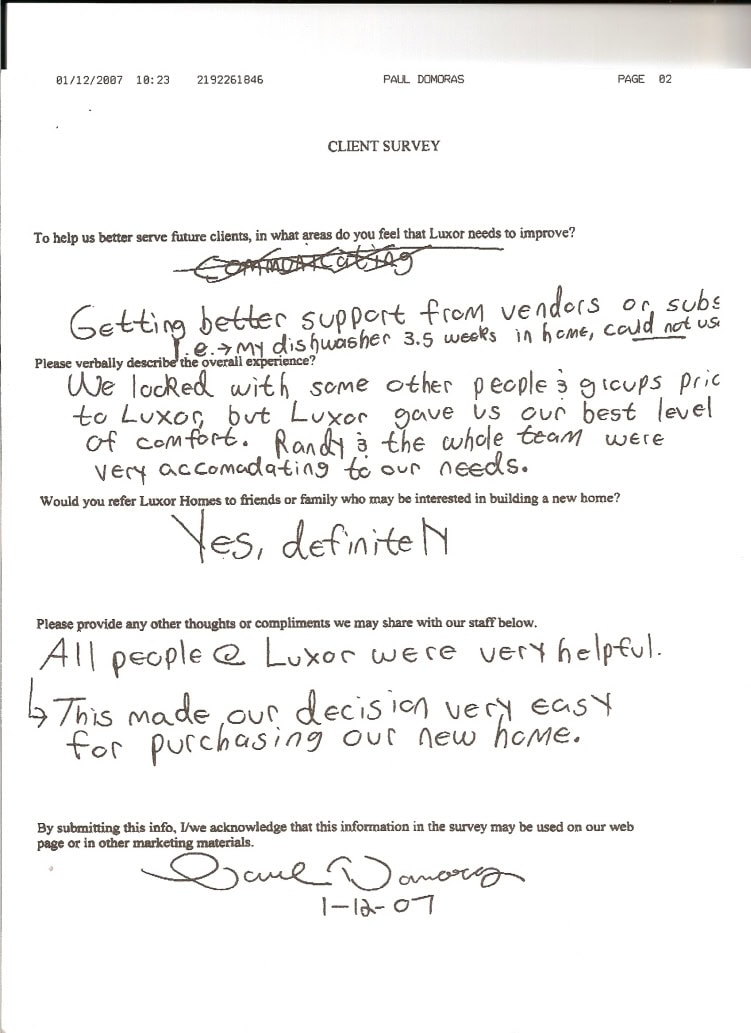 01/12/2007 10:23 2192261846 PAUL DOMORAS PAGE 02
CLIENT SURVEY
To help us better serve future clients, in what areas do you feel that Luxor needs to improve?
Communicating
Getting better support from vendors or subs
I.e. → my dishwasher 3.5 weeks in home, could not us
Please verbally describe the overall experience?
We looked with some other people & groups pric
to Luxor, but Luxor gave us our best level
of comfort. Randy & the whole team were
very accomadating to our needs.
Would you refer Luxor Homes to friends or family who may be interested in building a new home?
Yes, definitely
Please provide any other thoughts or compliments we may share with our staff below.
All people @ Luxor were very helpful.
↳ This made our decision very easy
for purchasing our new home.
By submitting this info, I/we acknowledge that this information in the survey may be used on our web
page or in other marketing materials.
Paul Domoras
1-12-07